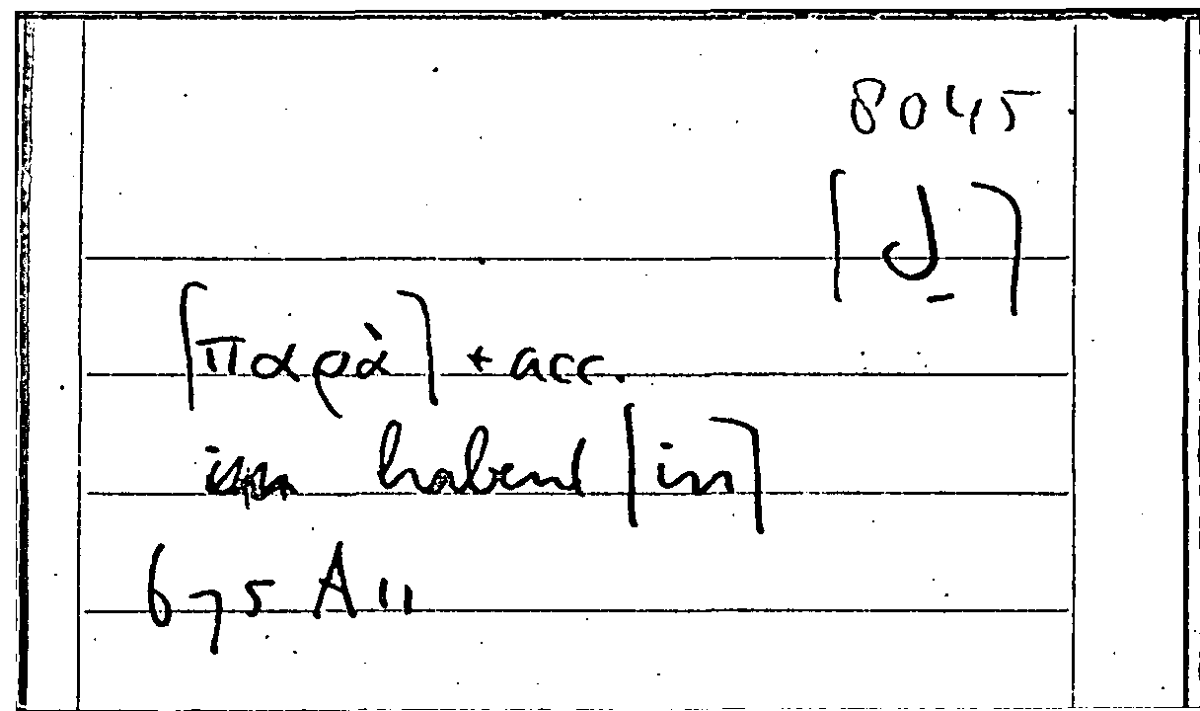 8045
⌈لِ⌉
⌈παρὰ⌉ + acc.
habent ⌈in⌉
675 A11